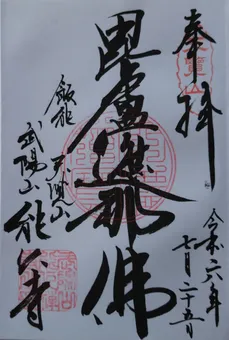 奉拝
令和六年
七月二十五日
毘盧遮那佛
飯能
武陽山 能仁寺